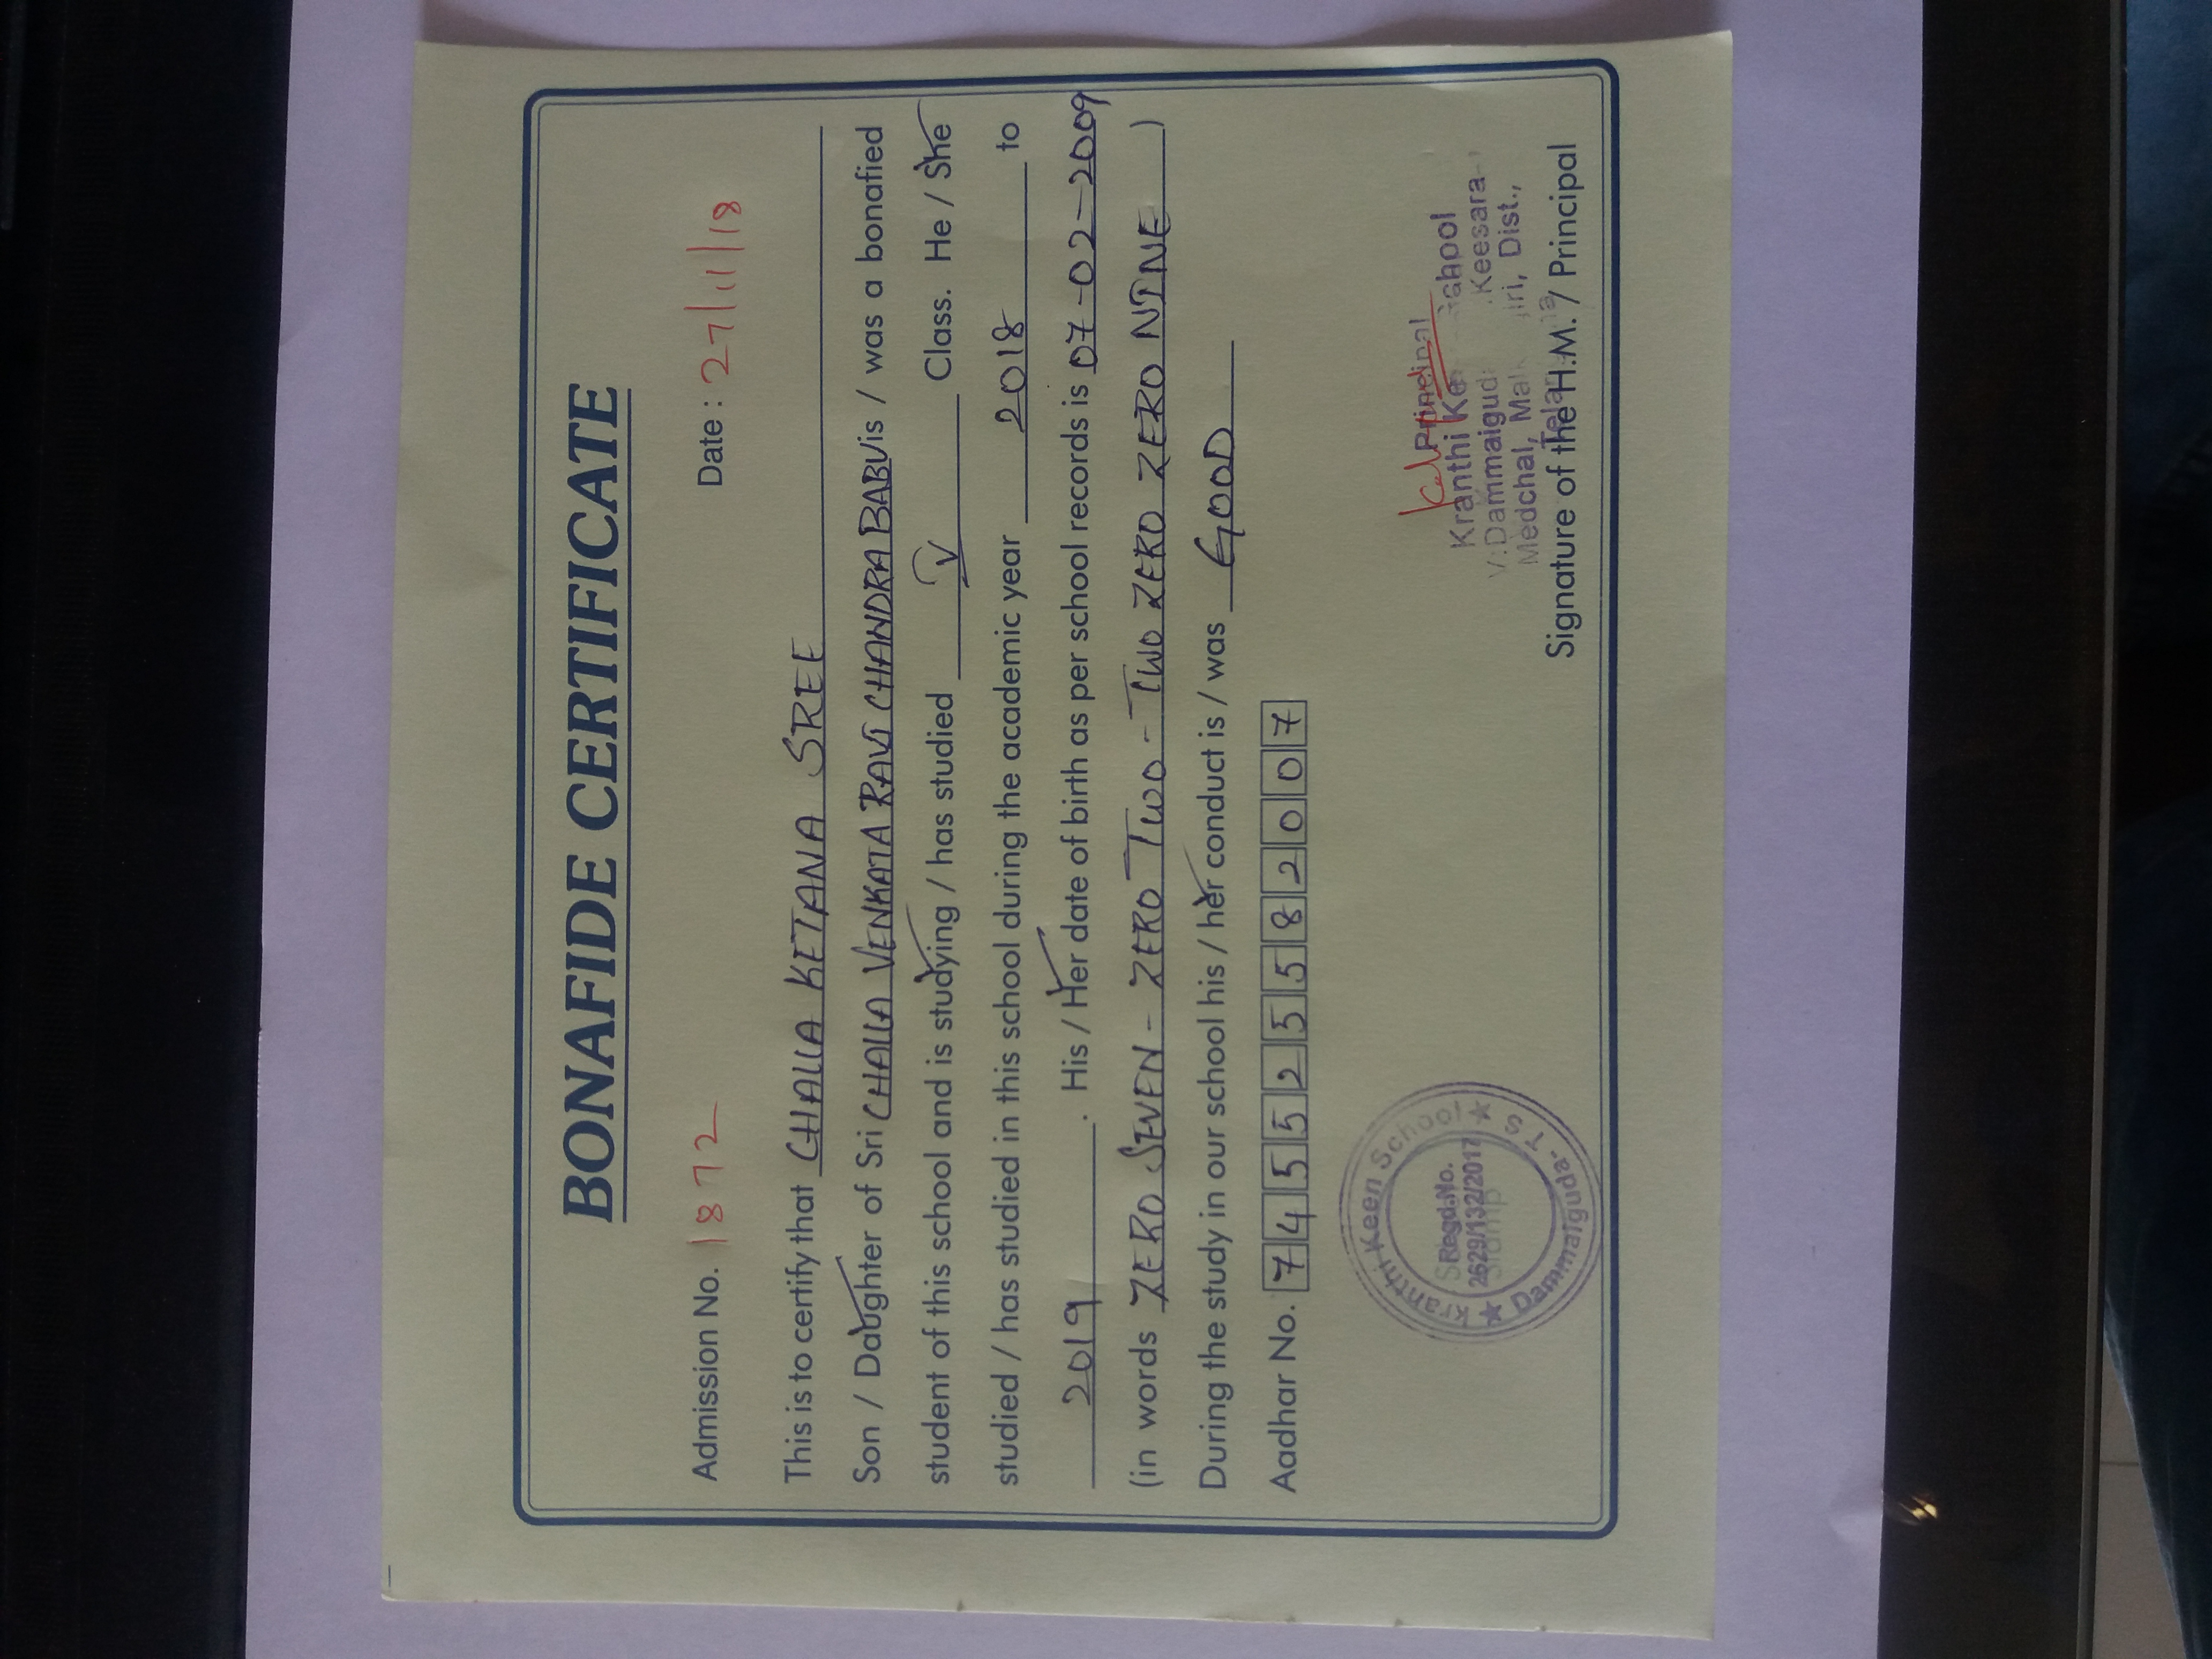 BONAFIDE CERTIFICATE
Admission No. 1872 Date : 27/11/18
This is to certify that CHALLA KETANA SREE
Son / Daughter of Sri CHALLA VENKATA RAVI CHANDRA BABU is / was a bonafied
student of this school and is studying / has studied V Class. He / She
studied / has studied in this school during the academic year 2018 to
2019. His / Her date of birth as per school records is 07-02-2009
(in words ZERO SEVEN - ZERO TWO - TWO ZERO ZERO NINE )
During the study in our school his / her conduct is / was GOOD
Aadhar No. 745525582007
Kranthi Keen School
Dammaiguda-TS
Regd.No.
2629/132/2017
Principal
Kranthi School
V:Dammaigud Keesara-
Medchal, Dist.,
Signature of the H.M. / Principal